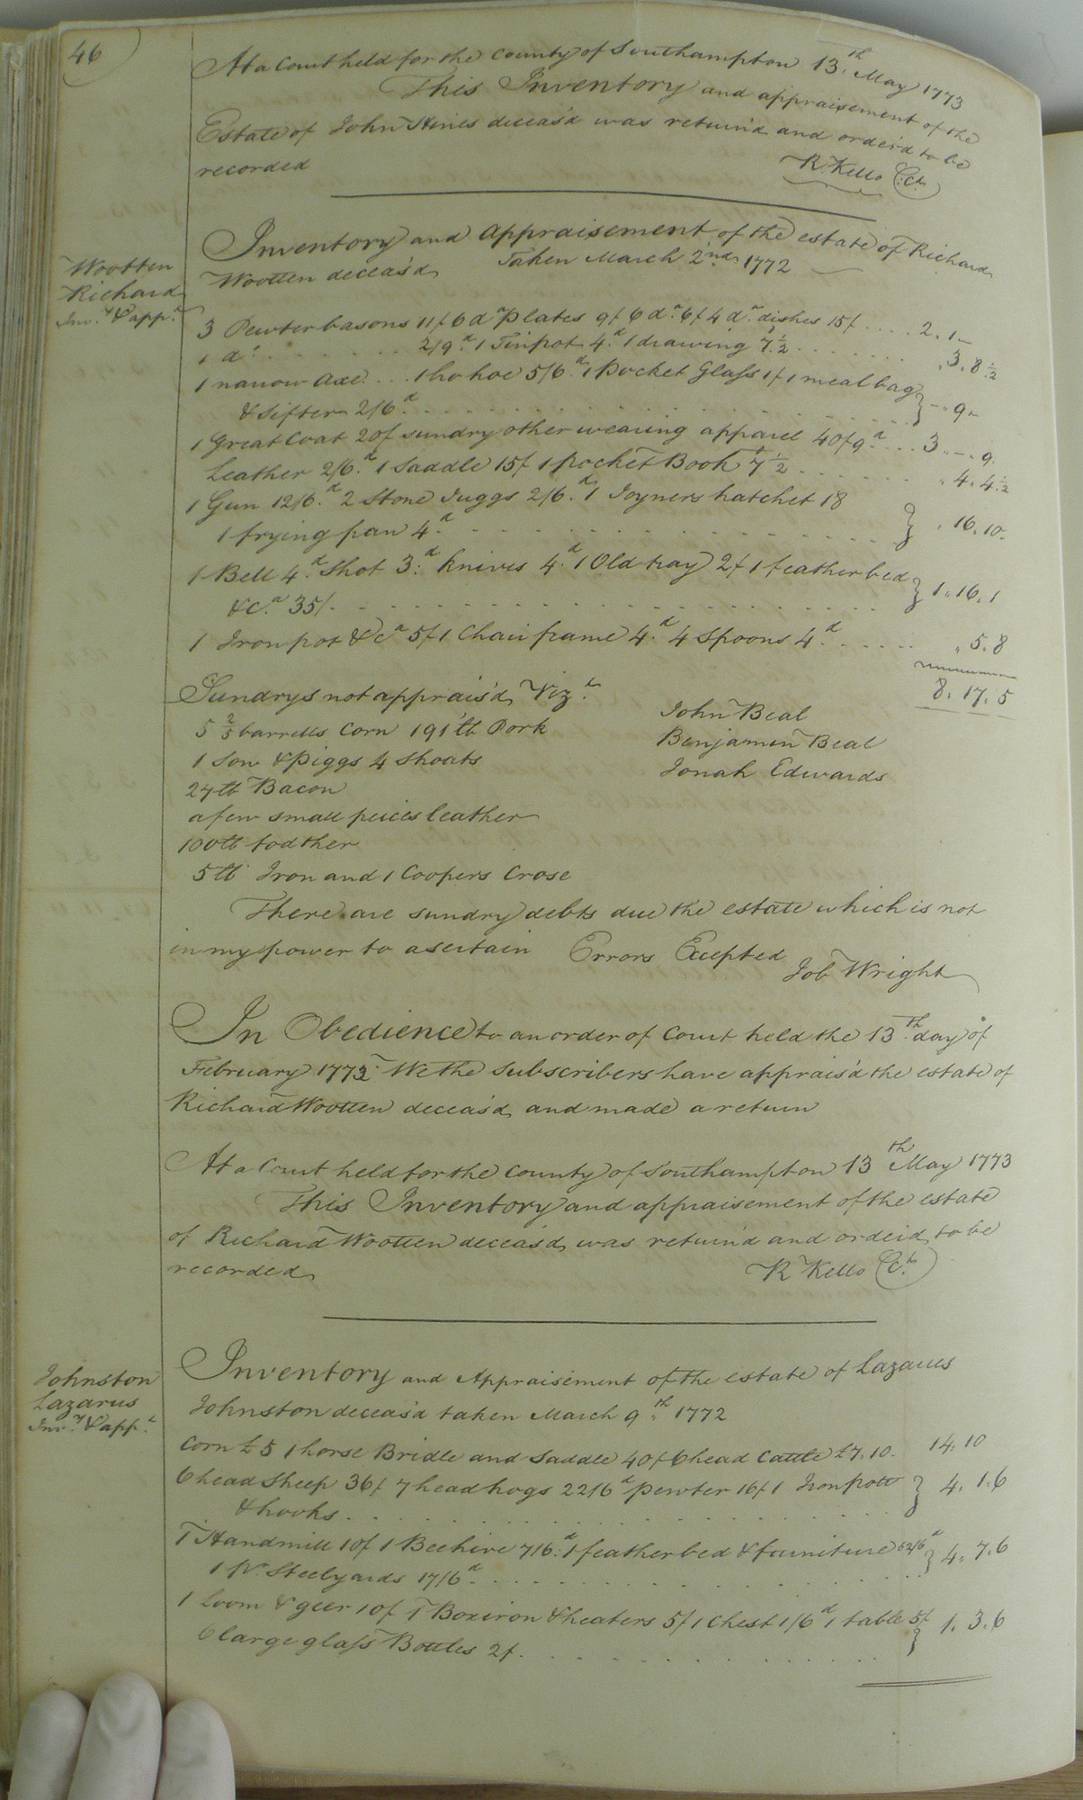 46
At a Court held for the County of Southampton 13.th May 1773
This Inventory and appraisement of the
Estate of John Hines deceas'd was return'd and order'd to be
recorded
R. Kello C:Ct
Wootten
Richard
Inv.y & app.t
Inventory and appraisement of the estate of Richard
Wootten deceas'd Taken March 2nd 1772
3 Pewter basons 11/6 6 do plates 9/6 do 6/ 4 do dishes 15/ .... 2. 1 –
1 do ....... 2/9d 1 Tinpot 4d 1 drawing 7½ ....... . 3. 8½
1 narrow Axe ... 1 ho hoe 5/6d 1 Pocket Glass 1/ 1 meal bag
& Sifter 2/6d ............ } – . 9 –
1 Great Coat 20/ sundry other wearing apparel 40/9d ... 3 . – . 9
Leather 2/6d 1 Saddle 15/ 1 pocket Book 7½ ...... . 4. 4½
1 Gun 12/6d 2 Stone Juggs 2/6d 1 Joyners hatchet 18
1 frying pan 4d ............ } . 16. 10
1 Bell 4d Shot 3d knives 4d 1 Old tray 2/ 1 feather bed
&c.a 35/ ............ } 1. 16. 1
1 Iron pot &ca 5/ 1 Chair frame 4d 4 Spoons 4d ...... . 5. 8
8. 17. 5
Sundrys not apprais'd Vizt
5 2/5 barrells Corn 191 lb Pork
John Beal
1 Sow & Piggs 4 Shoats
Benjamin Beal
24 lb Bacon
Jonah Edwards
a few small peices leather
100 lb fodther
5 lb Iron and 1 Coopers Crose
There are sundry debts due the estate which is not
in my power to asertain Errors Excepted
Job Wright
In Obedience to an order of Court held the 13.th day of
February 1772 We the Subscribers have apprais'd the estate of
Richard Wootten deceas'd and made a return
At a Court held for the County of Southampton 13th May 1773
This Inventory and appraisement of the estate
of Richard Wootten deceas'd was return'd and order'd to be
recorded
R Kello C.Ct
Johnston
Lazarus
Inv.y & app.t
Inventory and Appraisement of the estate of Lazarus
Johnston deceas'd taken March 9.th 1772
Corn £5 1 horse Bridle and Saddle 40/ 6 head Cattle £7.10. 14. 10
6 head Sheep 36/ 7 head hogs 22/6d pewter 16/ 1 Iron pott
& hooks ............ } 4. 1. 6
1 Handmill 10/ 1 Beehive 7/6d 1 feather bed & furniture 52/6d
1 Pr Steelyards 17/6d ............ } 4. 7. 6
1 Loom & geer 10/ 1 Box iron & heaters 5/ 1 Chest 1/6d 1 table 5/
6 large glass Bottles 2/ ............ } 1. 3. 6